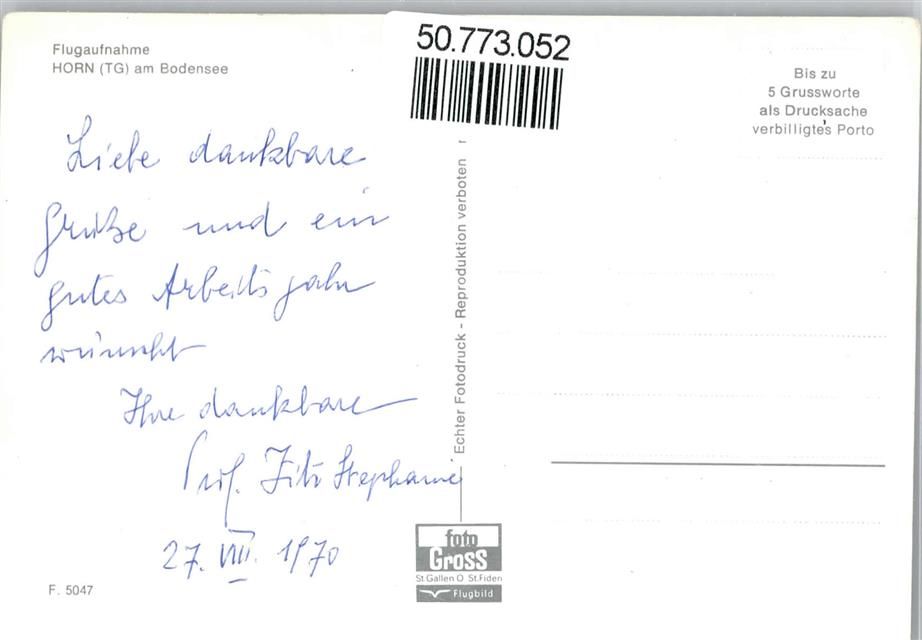 Flugaufnahme
HORN (TG) am Bodensee
50.773.052
Bis zu
5 Grussworte
als Drucksache
verbilligtes Porto
Liebe dankbare
Grüße und ein
gutes Arbeitsjahr
wünscht
Ihre dankbare
Prof. Fitz Stephanie
27. VIII. 1970
Echter Fotodruck - Reproduktion verboten
foto
Gross
St Gallen O St.Fiden
Flugbild
F. 5047